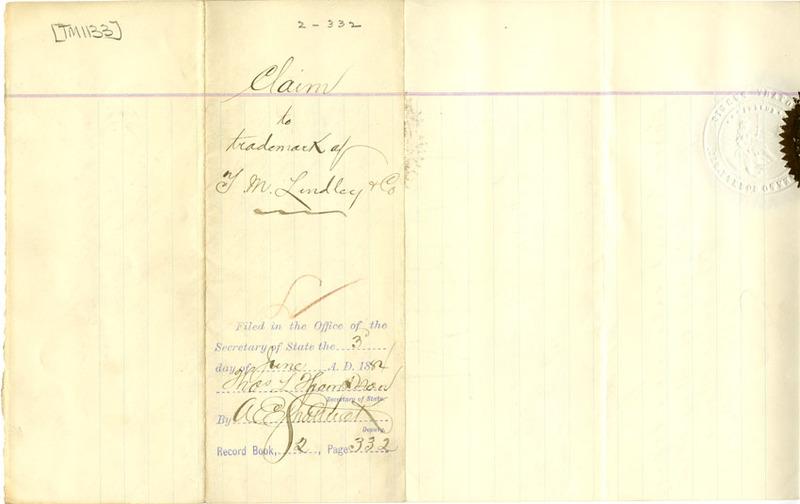 [TM1133]
2-332
Claim
to
trademark of
T. M. Lindley & Co
Filed in the Office of the
Secretary of State the 3
day of June A. D. 1884
Thos L Thompson
Secretary of State
By A E Shattuck
Deputy.
Record Book, 2, Page 332